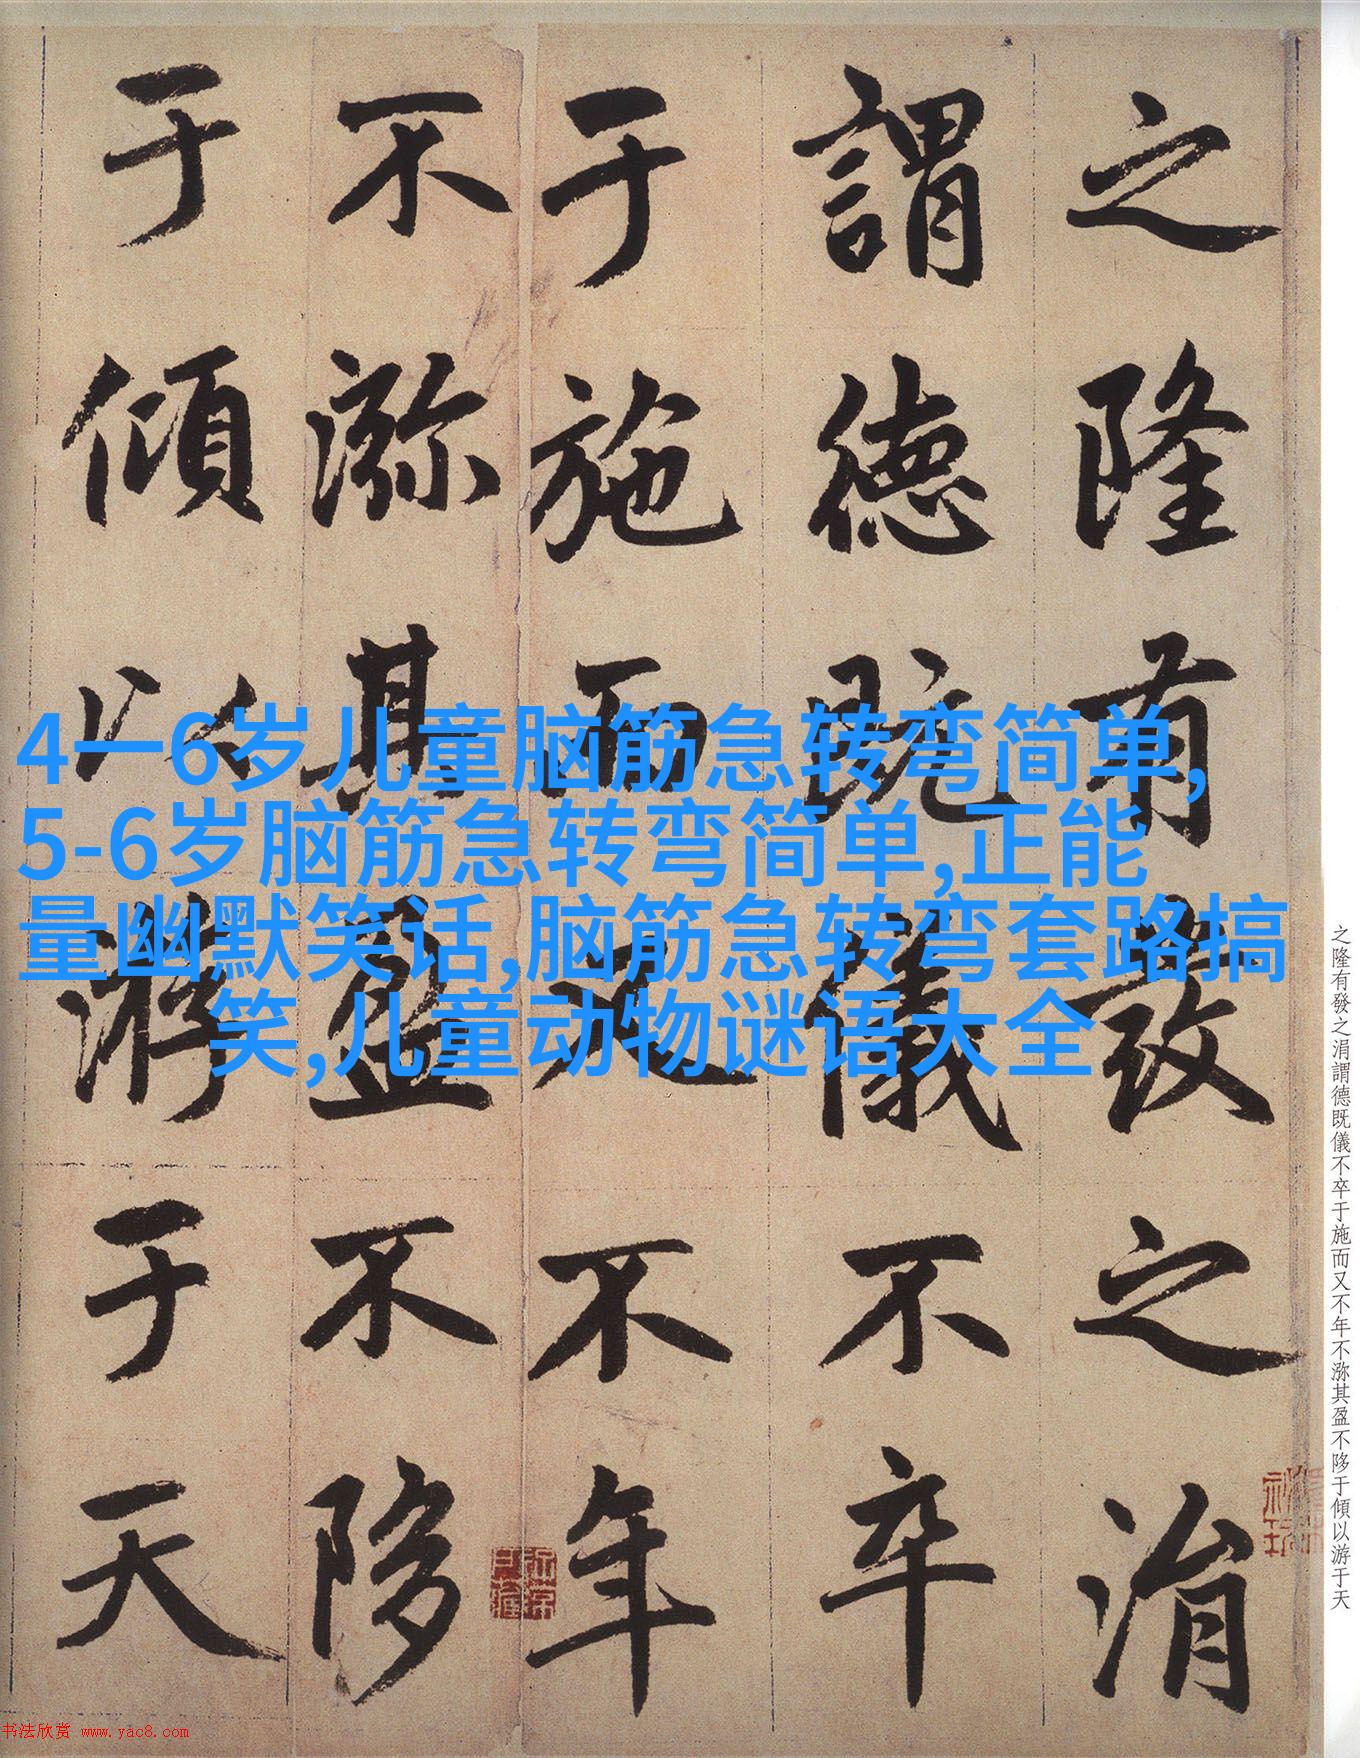 之隆有發之涓
謂德既儀不卒
于施而又不年
不㳽其盈不陊
于傾以游于天
4一6岁儿童脑筋急转弯简单,
5-6岁脑筋急转弯简单,正能
量幽默笑话,脑筋急转弯套路搞
笑,儿童动物谜语大全
之隆有發之涓謂德既儀不卒于施而又不年不㳽其盈不陊于傾以游于天
书法欣赏 www.yac8.com